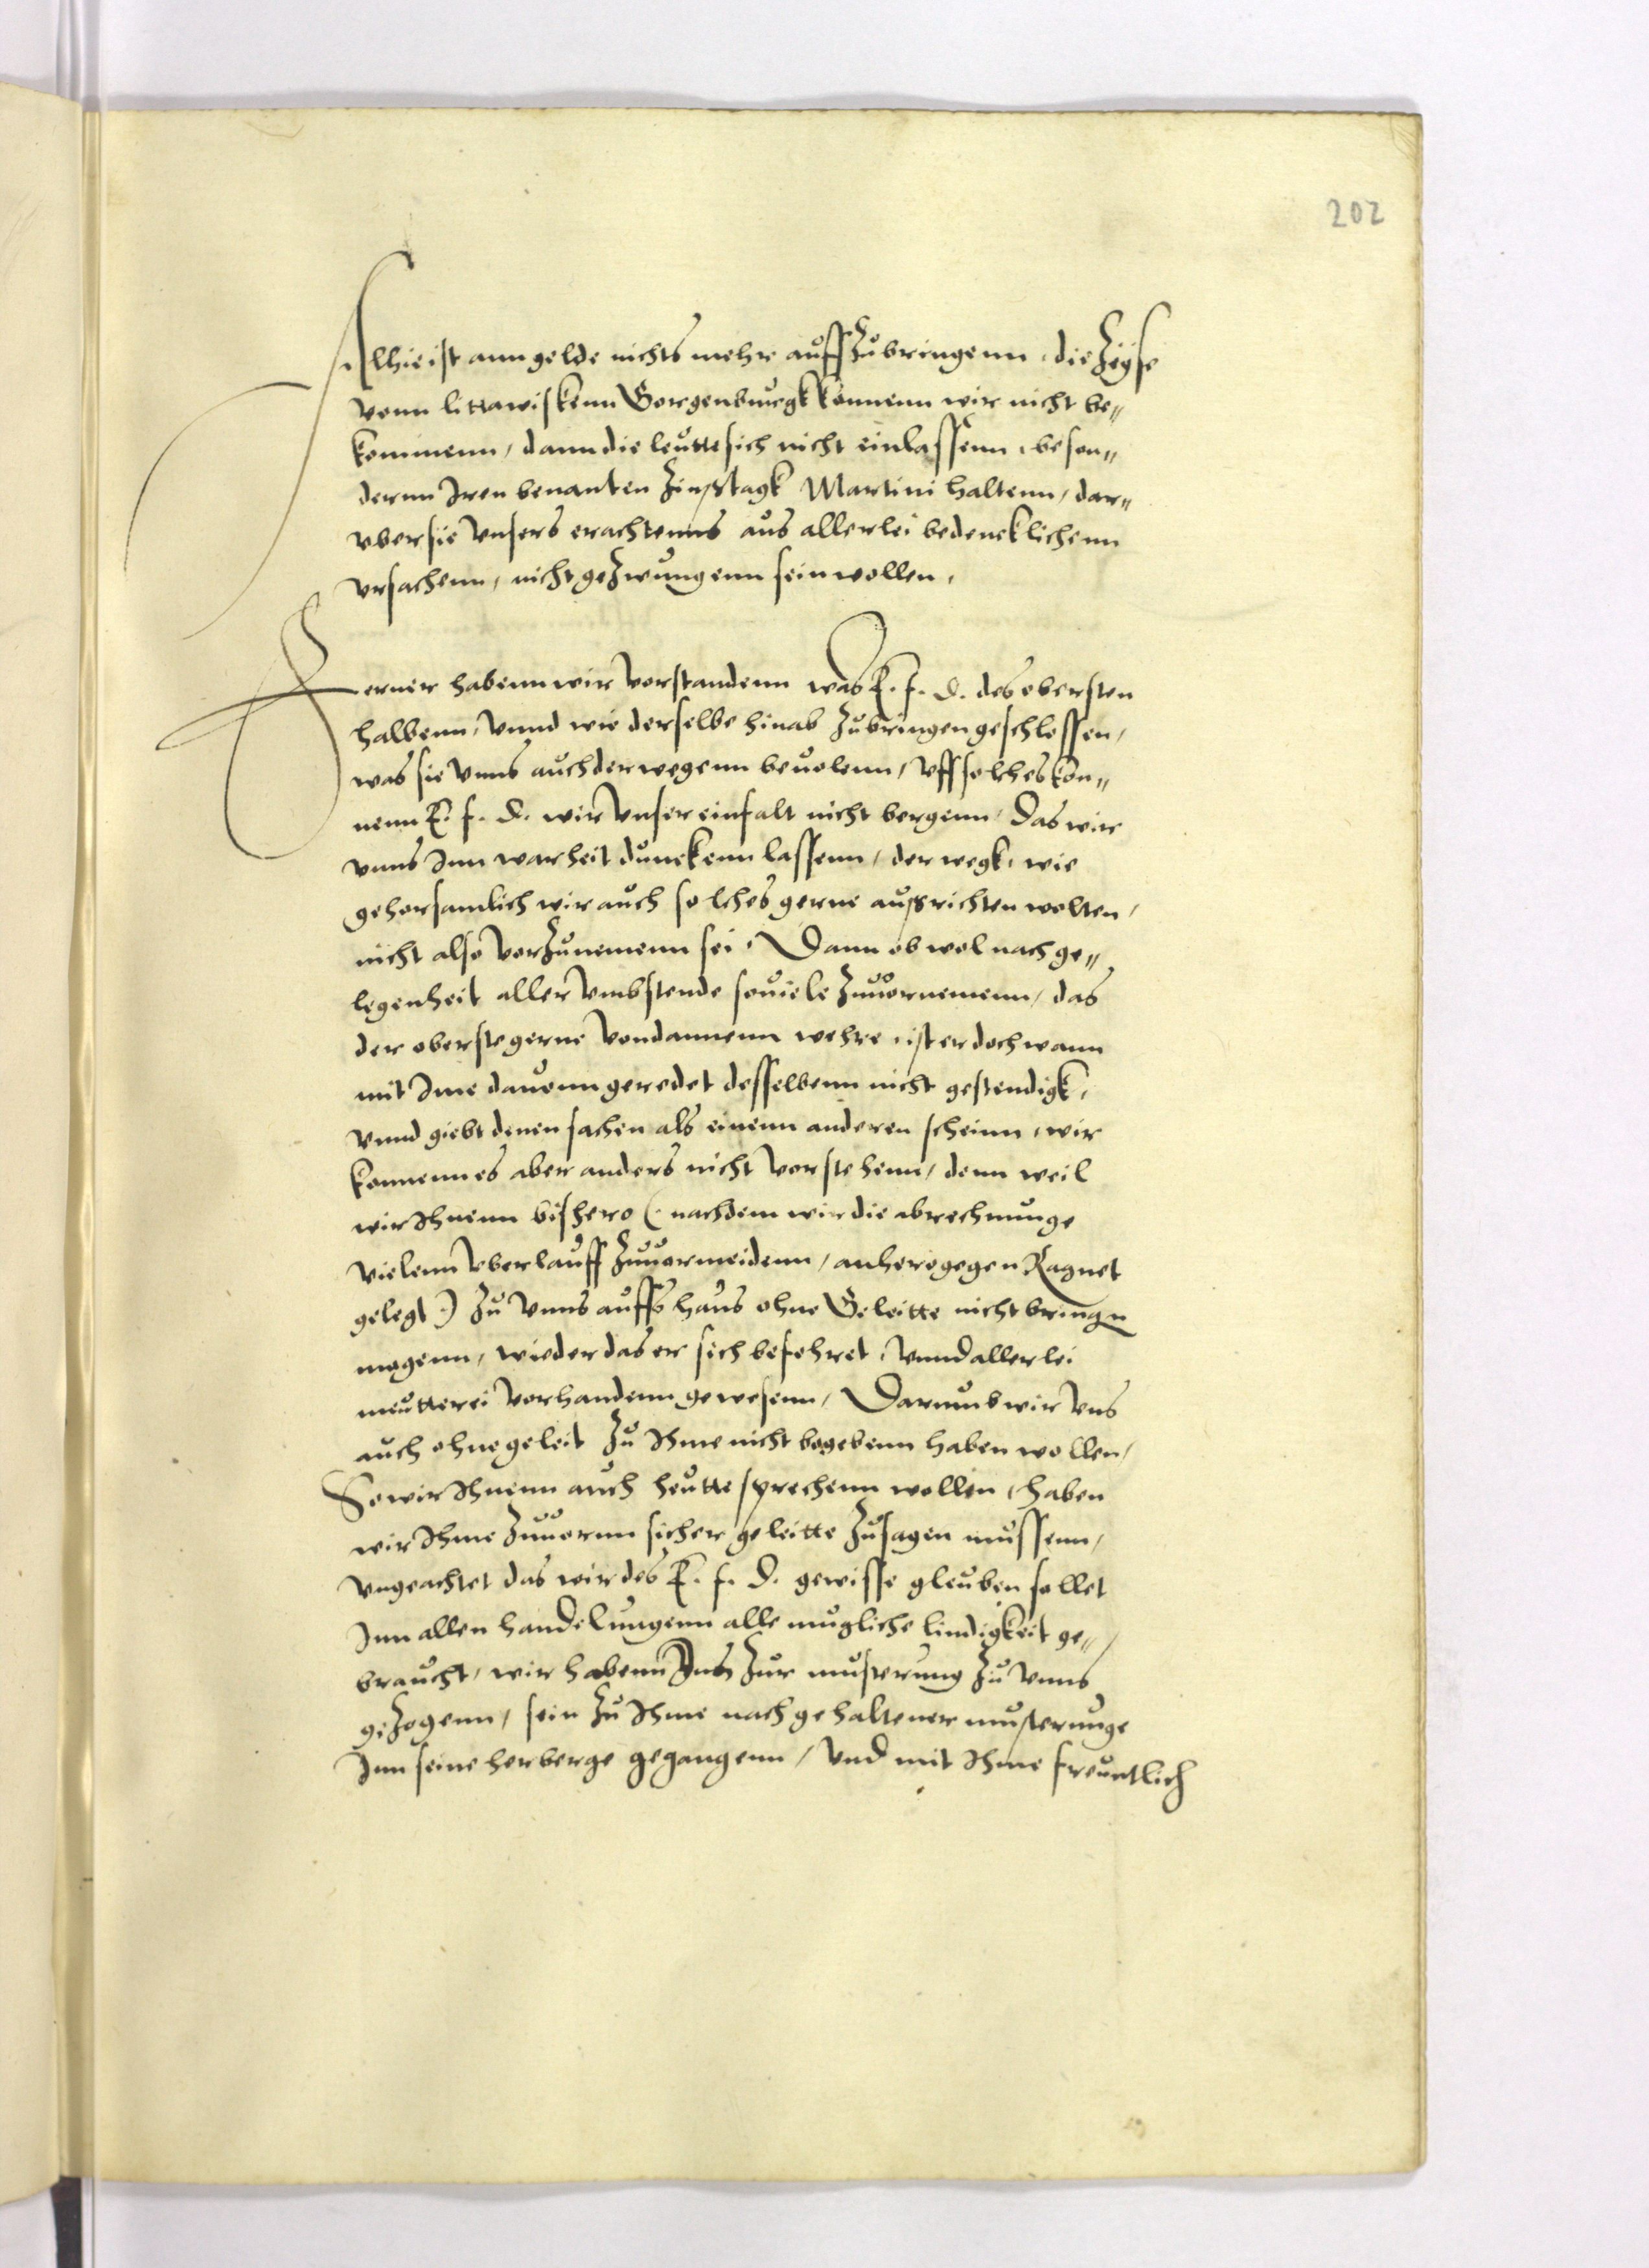 202
Alhie ist ann gelde nichts mehr auffZubringenn, die Zeyse
vonn littawiskenn Gorgenburgk konnenn wir nicht be„
kommenn, dann die leutte sich nicht einlassenn, beson„
dernn Iren benanten Zinßtagk Martini haltenn, dar„
vber sie vnsers erachtenns aus allerlei bedencklichenn
vrsachenn, nicht geZwungenn sein wollen.
Ferner habenn wir vorstandenn was E. f. D. des obersten
halbenn, vnnd wie derselbe hinab Zubringen geschlossen,
was sie vnns auch derwegenn beuolenn, vff solches kon„
nenn E. f. D. wir vnser einfalt nicht bergenn, Das wir
vnns Inn warheit dunckenn lassenn, der wegk, wie
gehorsamlich wir auch solches gerne außrichten wolten,
nicht also vorZunemenn sei, Dann ob wol nach ge„
legenheit aller vmbstende souiele Zuuornemenn, das
der oberste gerne vondannenn wehre, ist er doch wann
mit Ime dauonn geredet desselbenn nicht gestendigk,
vnnd giebt denen sachen als einenn anderen scheinn, wir
konnenn es aber anders nicht vorstehenn, denn weil
wir Ihnenn bishero (: nachdem wir die abrechnunge
vielenn vberlauff Zuuormeidenn, anhero gegen Ragnet
gelegt :) Zu vnns auffs haus ohne Geleitte nicht bringen
mogenn, wieder das er sich befehret, vnnd allerlei
meutterei vorhandenn gewesenn, Darumb wir vns
auch ohne geleit Zu Ihme nicht begebenn haben wollen,
So wir Ihnenn auch heutte sprechenn wollen, haben
wir Ihme Zuuornn sicher geleitte Zusagen mussenn,
vngeachtet das wir des E. f. D. gewisse gleuben sollet
Inn allen handelungenn alle mugliche lindigkeit ge„
braucht, wir habenn Zur musterung Zu vnns
geZogenn, sein Zu Ihme nach gehaltener musterunge
Inn seine herberge gegangenn, vnd mit Ihme freuntlich